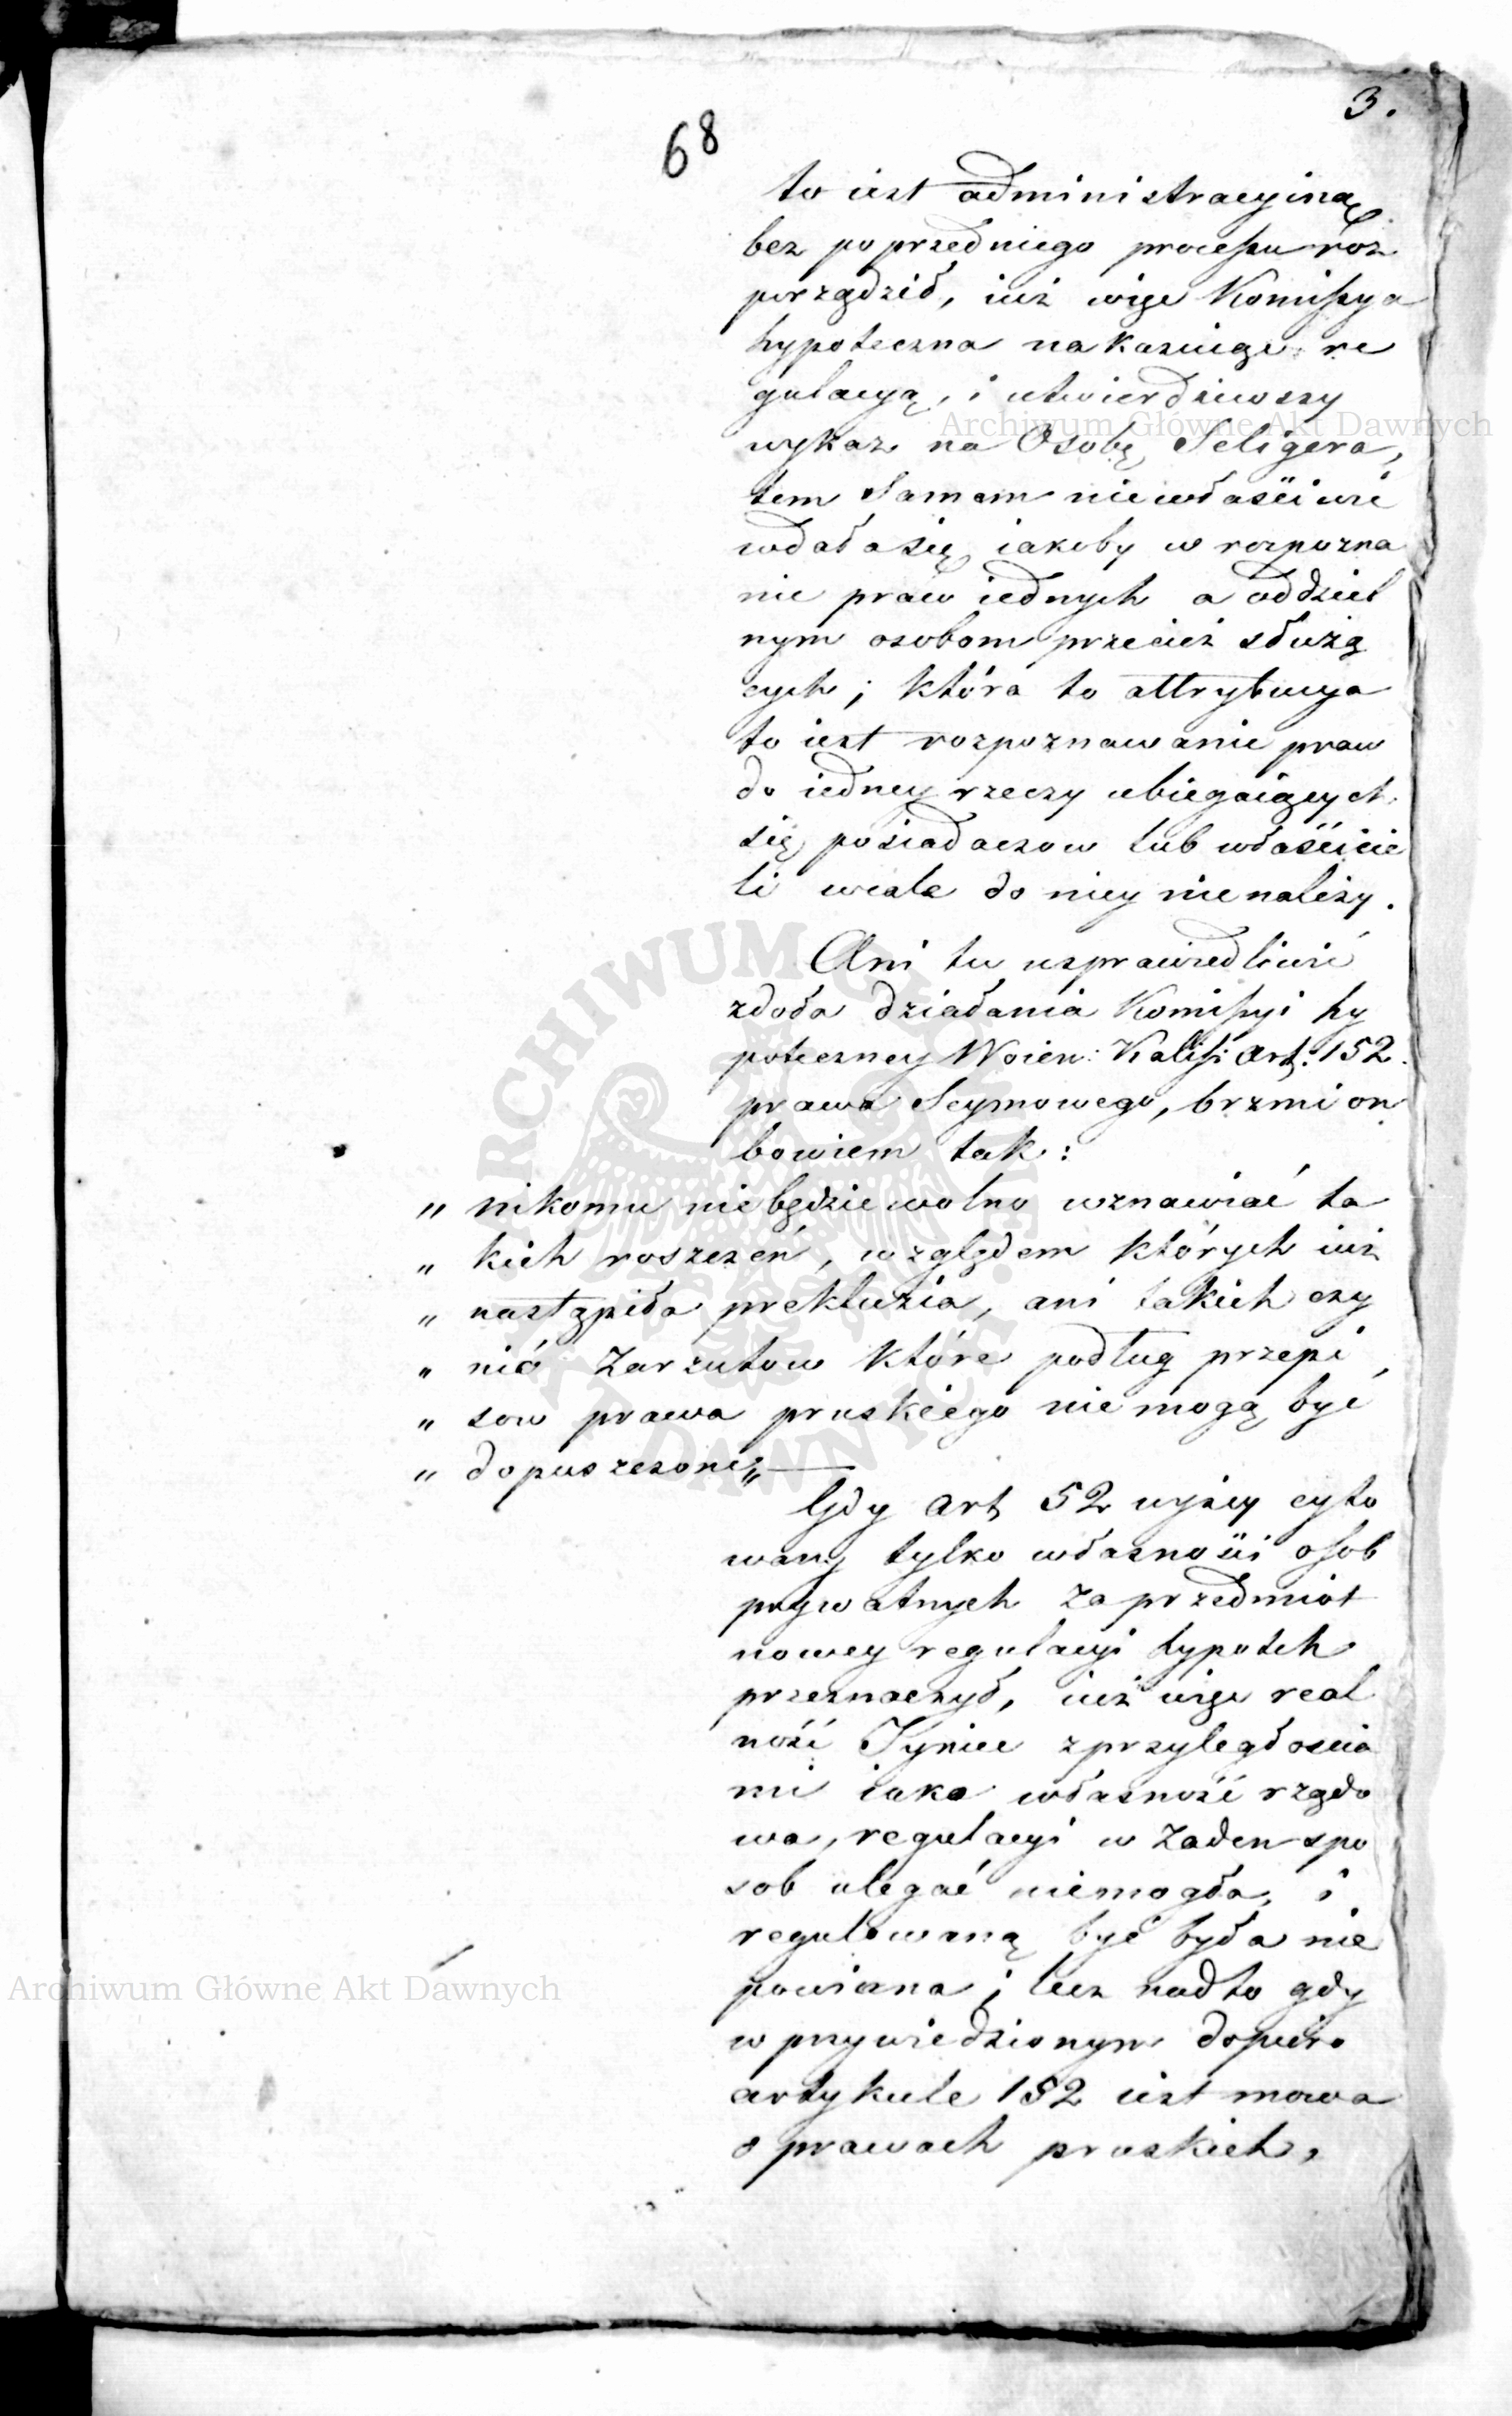 3.
68
to iest administracyiną
bez poprzedniego processu roz
porządził, iuż więc Kommissya
hypoteczna nakazuiąc re
gulacyą, i utwierdziwszy
wykaz na Osobę Seligera,
tem samem niewłaściwie
wdała się iakoby w rozpozna
nie praw iednych a oddziel
nym osobom przecież służą
cych; która to attrybucya
to iest rozpoznawanie praw
do iedney rzeczy ubiegaiących
się posiadaczow lub właścicie
li wcale do niey nienależy.
Ani tu usprawiedliwić
zdoła działania Komissyi hy
poteczney Woiew: Kalisk: art: 152.
prawa Seymowego, brzmi on
bowiem tak:
„ nikomu niebędzie wolno wznawiać ta
„ kich roszczeń, względem których iuż
„ nastąpiła prekluzia, ani takich czy
„ nić zarzutow które podług przepi
„ sow prawa pruskiego nie mogą być
„ dopuszczone„ —
Gdy art 52 wyżey cyto
wany tylko własności osob
prywatnych za przedmiot
nowey regulacyi hypotek
przeznaczył, iuż więc real
ność Tyniec z przyległościa
mi iako własność rządo
wa, regulacyi w żaden spo
sob ulegać niemogła, i
regulowaną być była nie
powinna; lecz nadto gdy
w przywiedzionym dopiero
artykule 152 iest mowa
o prawach pruskich,
Archiwum Główne Akt Dawnych
Archiwum Główne Akt Dawnych